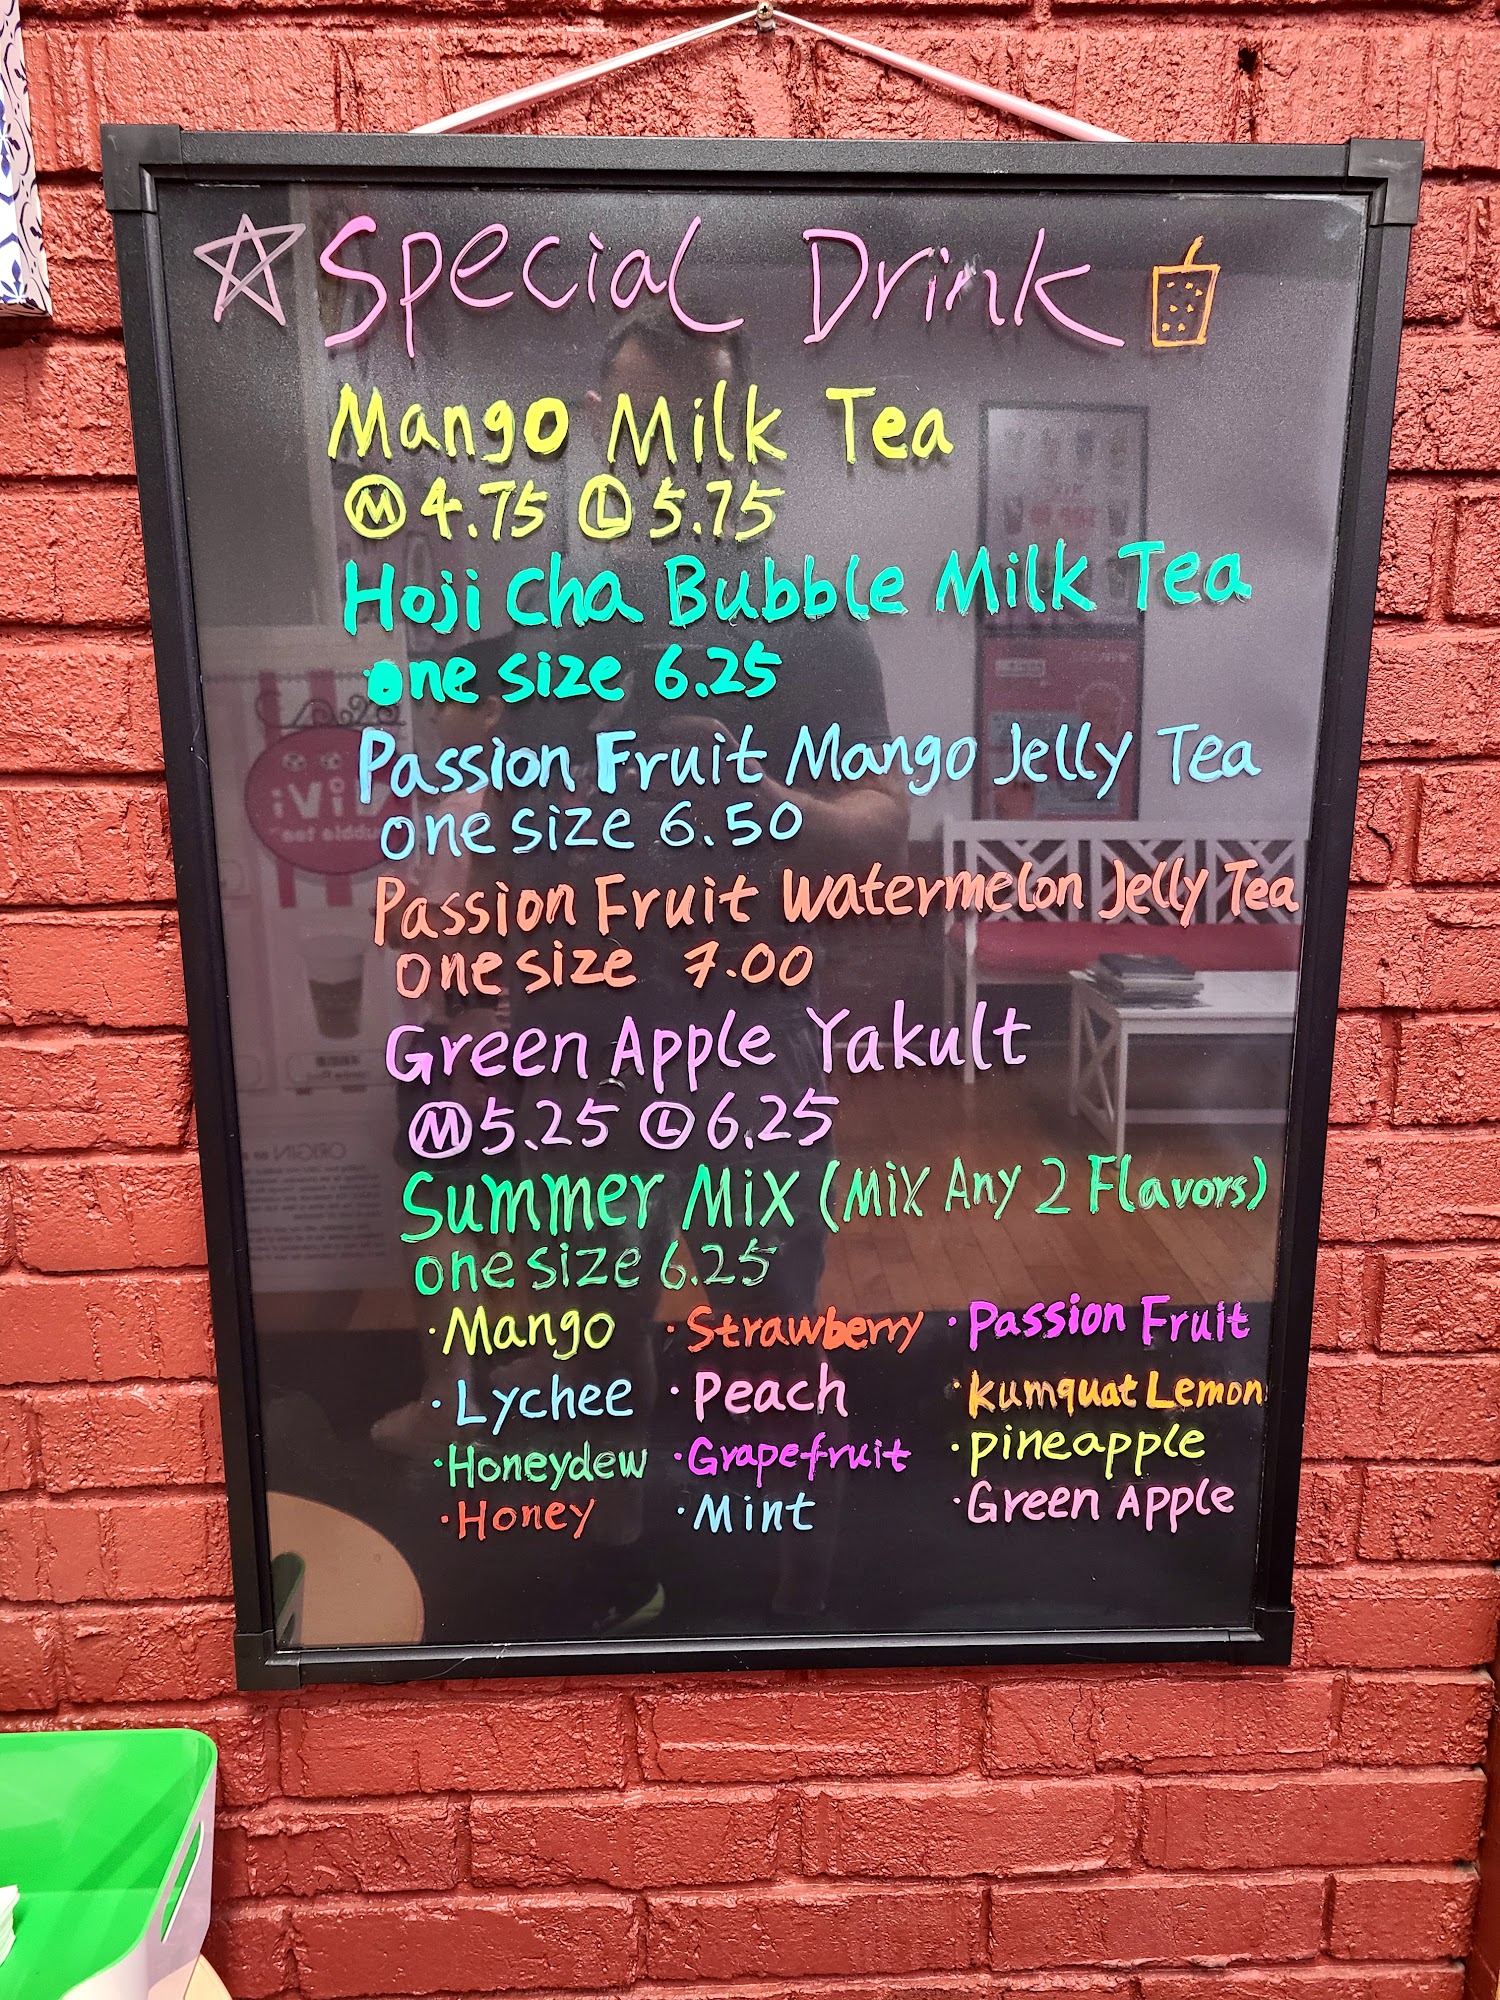 Special Drink
Mango Milk Tea
Ⓜ 4.75 Ⓛ 5.75
Hoji Cha Bubble Milk Tea
one size 6.25
Passion Fruit Mango Jelly Tea
one size 6.50
Passion Fruit Watermelon Jelly Tea
one size 7.00
Green Apple Yakult
Ⓜ 5.25 Ⓛ 6.25
Summer Mix (Mix Any 2 Flavors)
one size 6.25
·Mango ·Strawberry ·Passion Fruit
·Lychee ·Peach ·Kumquat Lemon
·Honeydew ·Grapefruit ·pineapple
·Honey ·Mint ·Green Apple
ViVi
bubble tea
ORIGIN